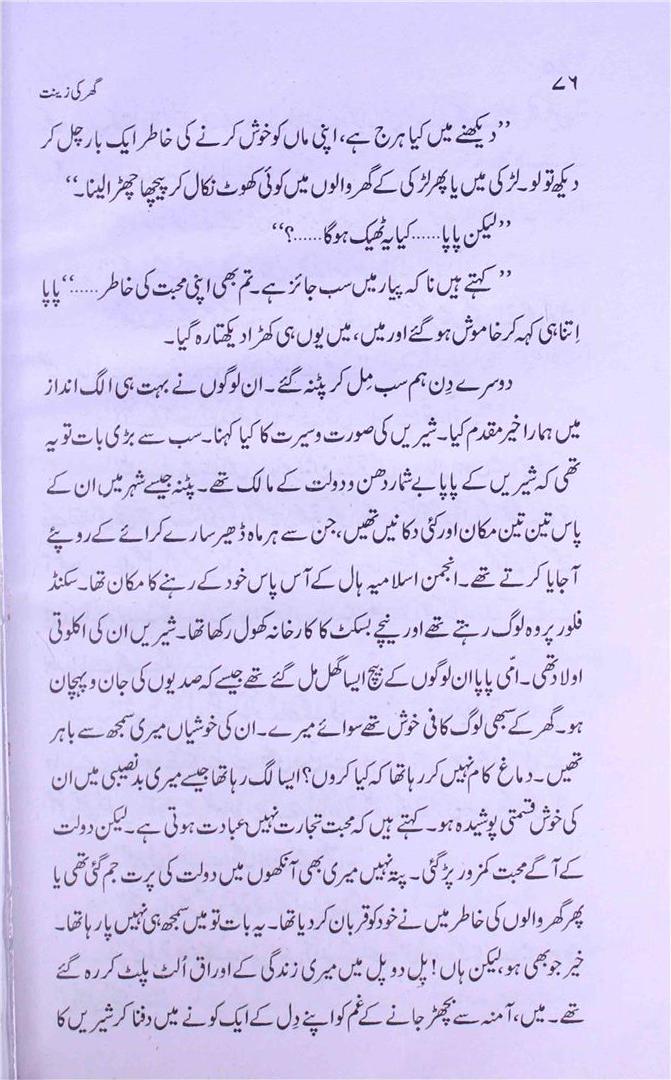 ۷۶ گھر کی زینت
’’دیکھنے میں کیا ہرج ہے، اپنی ماں کو خوش کرنے کی خاطر ایک بار چل کر
دیکھ تو لو۔ لڑکی میں یا پھر لڑکی کے گھر والوں میں کوئی کھوٹ نکال کر پیچھا چھڑا لینا۔‘‘
’’لیکن پاپا......کیا یہ ٹھیک ہوگا......؟‘‘
’’کہتے ہیں نا کہ پیار میں سب جائز ہے۔ تم بھی اپنی محبت کی خاطر......‘‘ پاپا
اِتنا ہی کہہ کر خاموش ہو گئے اور میں، میں یوں ہی کھڑا دیکھتا رہ گیا۔
دوسرے دِن ہم سب مِل کر پٹنہ گئے۔ ان لوگوں نے بہت ہی الگ انداز
میں ہمارا خیر مقدم کیا۔ شیریں کی صورت و سیرت کا کیا کہنا۔ سب سے بڑی بات تو یہ
تھی کہ شیریں کے پاپا بے شمار دھن و دولت کے مالک تھے۔ پٹنہ جیسے شہر میں ان کے
پاس تین تین مکان اور کئی دکانیں تھیں، جن سے ہر ماہ ڈھیر سارے کرائے کے روپئے
آجایا کرتے تھے۔ انجمن اسلامیہ ہال کے آس پاس خود کے رہنے کا مکان تھا۔ سکنڈ
فلور پر وہ لوگ رہتے تھے اور نیچے بسکٹ کا کارخانہ کھول رکھا تھا۔ شیریں ان کی اکلوتی
اولاد تھی۔ امّی پاپا ان لوگوں کے بیچ ایسا گھل مل گئے تھے جیسے کہ صدیوں کی جان و پہچان
ہو۔ گھر کے سبھی لوگ کافی خوش تھے سوائے میرے۔ ان کی خوشیاں میری سمجھ سے باہر
تھیں۔ دماغ کام نہیں کر رہا تھا کہ کیا کروں؟ ایسا لگ رہا تھا جیسے میری بدنصیبی میں ان
کی خوش قسمتی پوشیدہ ہو۔ کہتے ہیں کہ محبت تجارت نہیں عبادت ہوتی ہے۔ لیکن دولت
کے آگے محبت کمزور پڑ گئی۔ پتہ نہیں میری بھی آنکھوں میں دولت کی پرت جم گئی تھی یا
پھر گھر والوں کی خاطر میں نے خود کو قربان کر دیا تھا۔ یہ بات تو میں سمجھ ہی نہیں پا رہا تھا۔
خیر جو بھی ہو، لیکن ہاں! پل دو پل میں میری زندگی کے اوراق اُلٹ پلٹ کر رہ گئے
تھے۔ میں، آمنہ سے بچھڑ جانے کے غم کو اپنے دِل کے ایک کونے میں دفنا کر شیریں کا